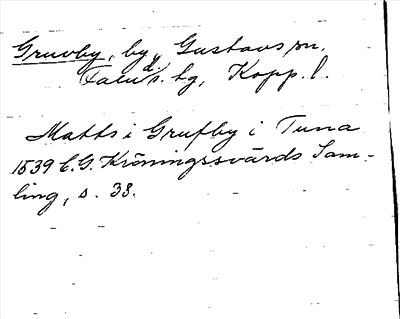 Gruvby, by, Gustavs sn.
Falu s. hg, Kopp. l.
Matts i Grufby i Tuna
1539 C.G. Kröningssvärds Sam-
ling, s. 38.